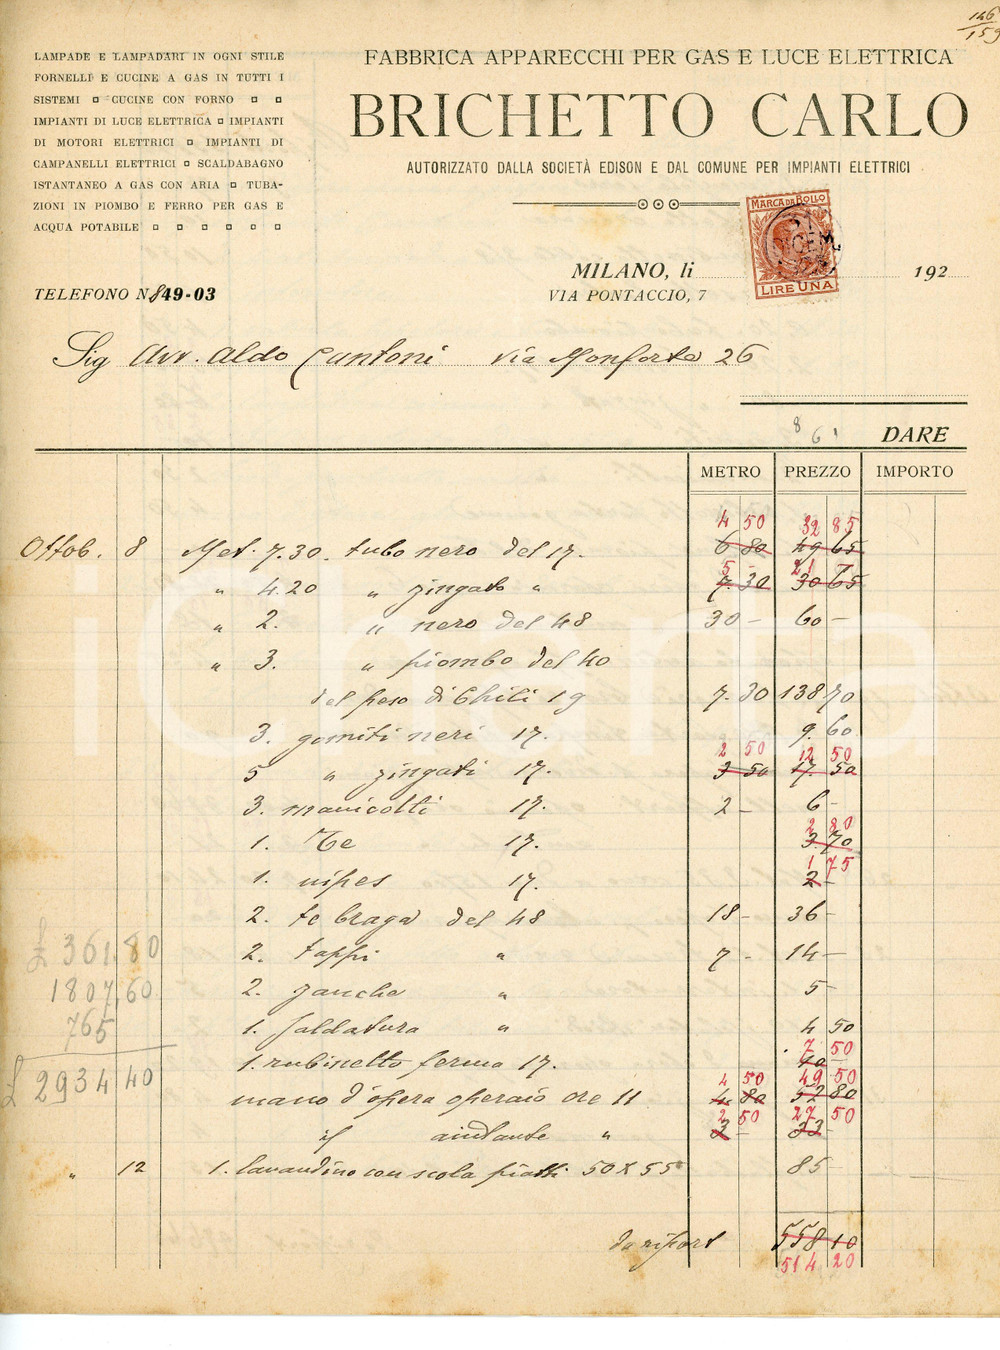 146
159
LAMPADE E LAMPADARI IN OGNI STILE
FORNELLI E CUCINE A GAS IN TUTTI I
SISTEMI ¤ CUCINE CON FORNO ¤ ¤
IMPIANTI DI LUCE ELETTRICA ¤ IMPIANTI
DI MOTORI ELETTRICI ¤ IMPIANTI DI
CAMPANELLI ELETTRICI ¤ SCALDABAGNO
ISTANTANEO A GAS CON ARIA ¤ TUBA-
ZIONI IN PIOMBO E FERRO PER GAS E
ACQUA POTABILE ¤ ¤ ¤ ¤ ¤ ¤
TELEFONO N. 849-03
FABBRICA APPARECCHI PER GAS E LUCE ELETTRICA
BRICHETTO CARLO
AUTORIZZATO DALLA SOCIETÀ EDISON E DAL COMUNE PER IMPIANTI ELETTRICI
MARCA DA BOLLO
LIRE UNA
MILANO, lì 192
VIA PONTACCIO, 7
Sig Avv. Aldo Cantoni Via Monforte 26
8 61
DARE
METRO PREZZO IMPORTO
4 50 32 85
Ottob. 8 Met. 7.30 tubo nero del 17. 6 80 49 65
5 - 21 -
" 4.20 " zingato " 7. 30 30 65
" 2. " nero del 48 30 - 60 -
" 3. " piombo del 40
del peso di Chili 19 7. 30 138 70
3. gomiti neri 17. 9. 60
2 50 12 50
5 " zingati 17. 3 50 17. 50
3. manicotti 17. 2 - 6 -
2 80
1. Te 17. 3. 70
1 75
1. nipes 17. 2 -
2. te braga del 48 18 - 36 -
2. tappi " 7 - 14 -
2. zanche " 5 -
1. saldatura " 4 50
7 50
1. rubinetto fermo 17. 10
4 50 49 50
mano d'opera operaio ore 11 4. 80 52 80
2 50 27 50
if aiutante " 3 33
" 12 1. lavandino con scola piatti 50 X 55 85 -
da riport 558 10
514 20
£ 361,80
1807,60
765
£ 2934 40
iCharta